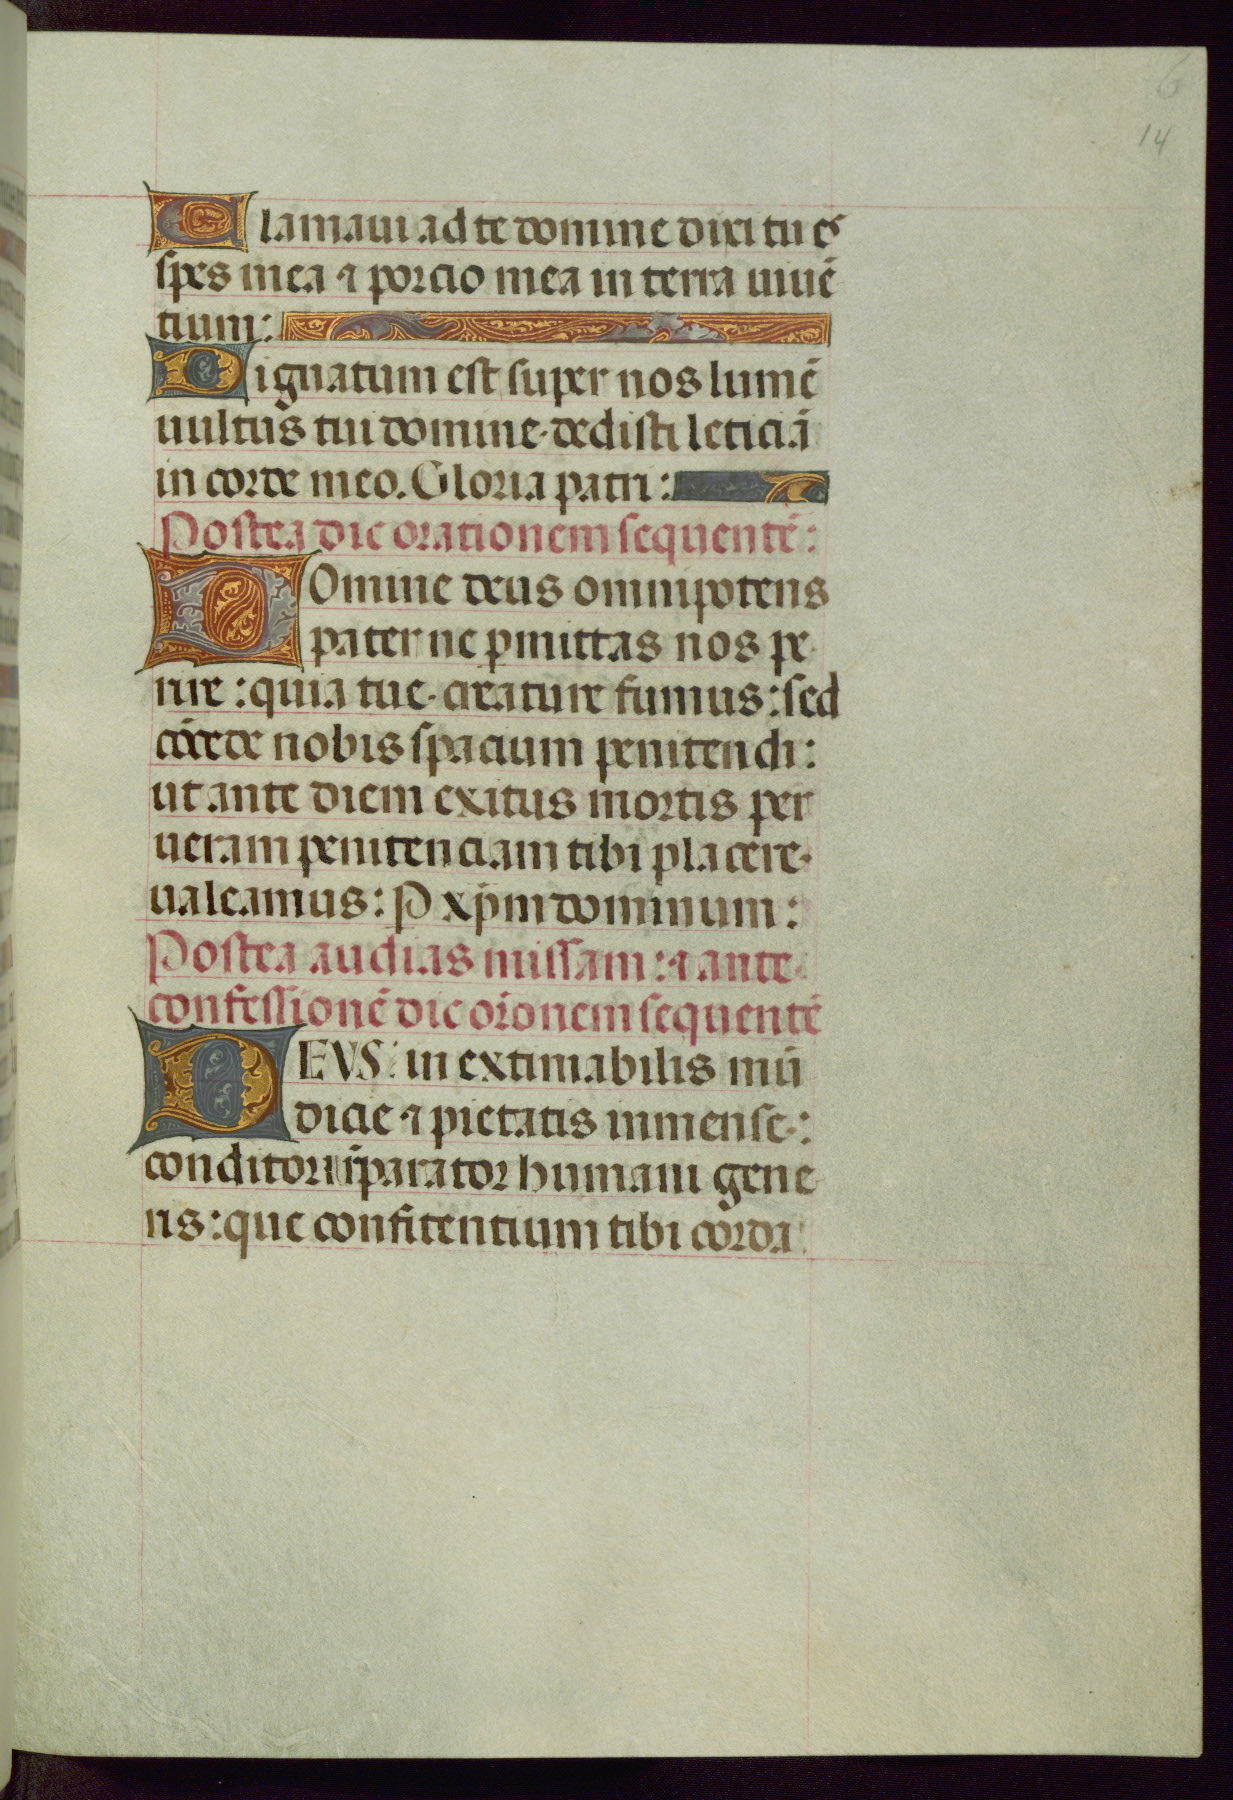 6
14
Clamaui ad te domine dixi tu es
spes mea ⁊ porcio mea in terra uiuē
tium:
Signatum est super nos lumē
uultus tui domine. dedisti leticiā
in corde meo. Gloria patri:
Postea dic orationem sequentē:
DOmine deus omnipotens
pater ne ꝑmittas nos pe
rire: quia tue. creature sumus: sed
cōcede nobis spacium penitendi:
ut ante diem exitus mortis per
ueram penitenciam tibi placere.
ualeamus: P xp̄m dominum:
Postea audias missam: ⁊ ante
confessionē dic orōnem sequentē
DEVS: in extimabilis mū
dicie ⁊ pietatis inmense:
conditor
humani gene
ris: que confitentium tibi corda